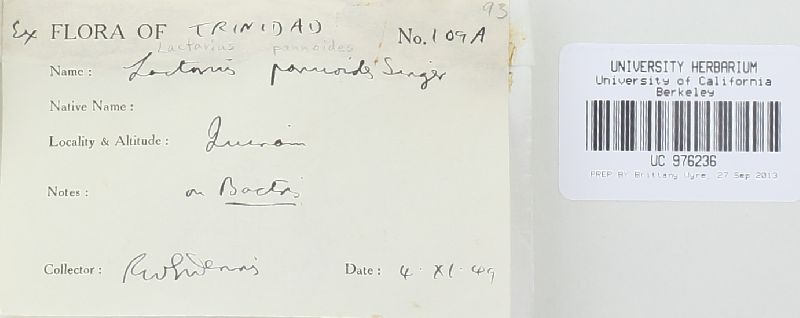 93
Ex FLORA OF TRINIDAD No. 109A
Lactarius pannoides
Name: Lactarius pannoides Singer
Native Name:
Locality & Altitude:
Notes: on Bactris
Collector: RWGDennis Date: 4. XI. 49
UNIVERSITY HERBARIUM
University of California
Berkeley
UC 976236
PREP BY Brittany Uyre, 27 Sep 2013